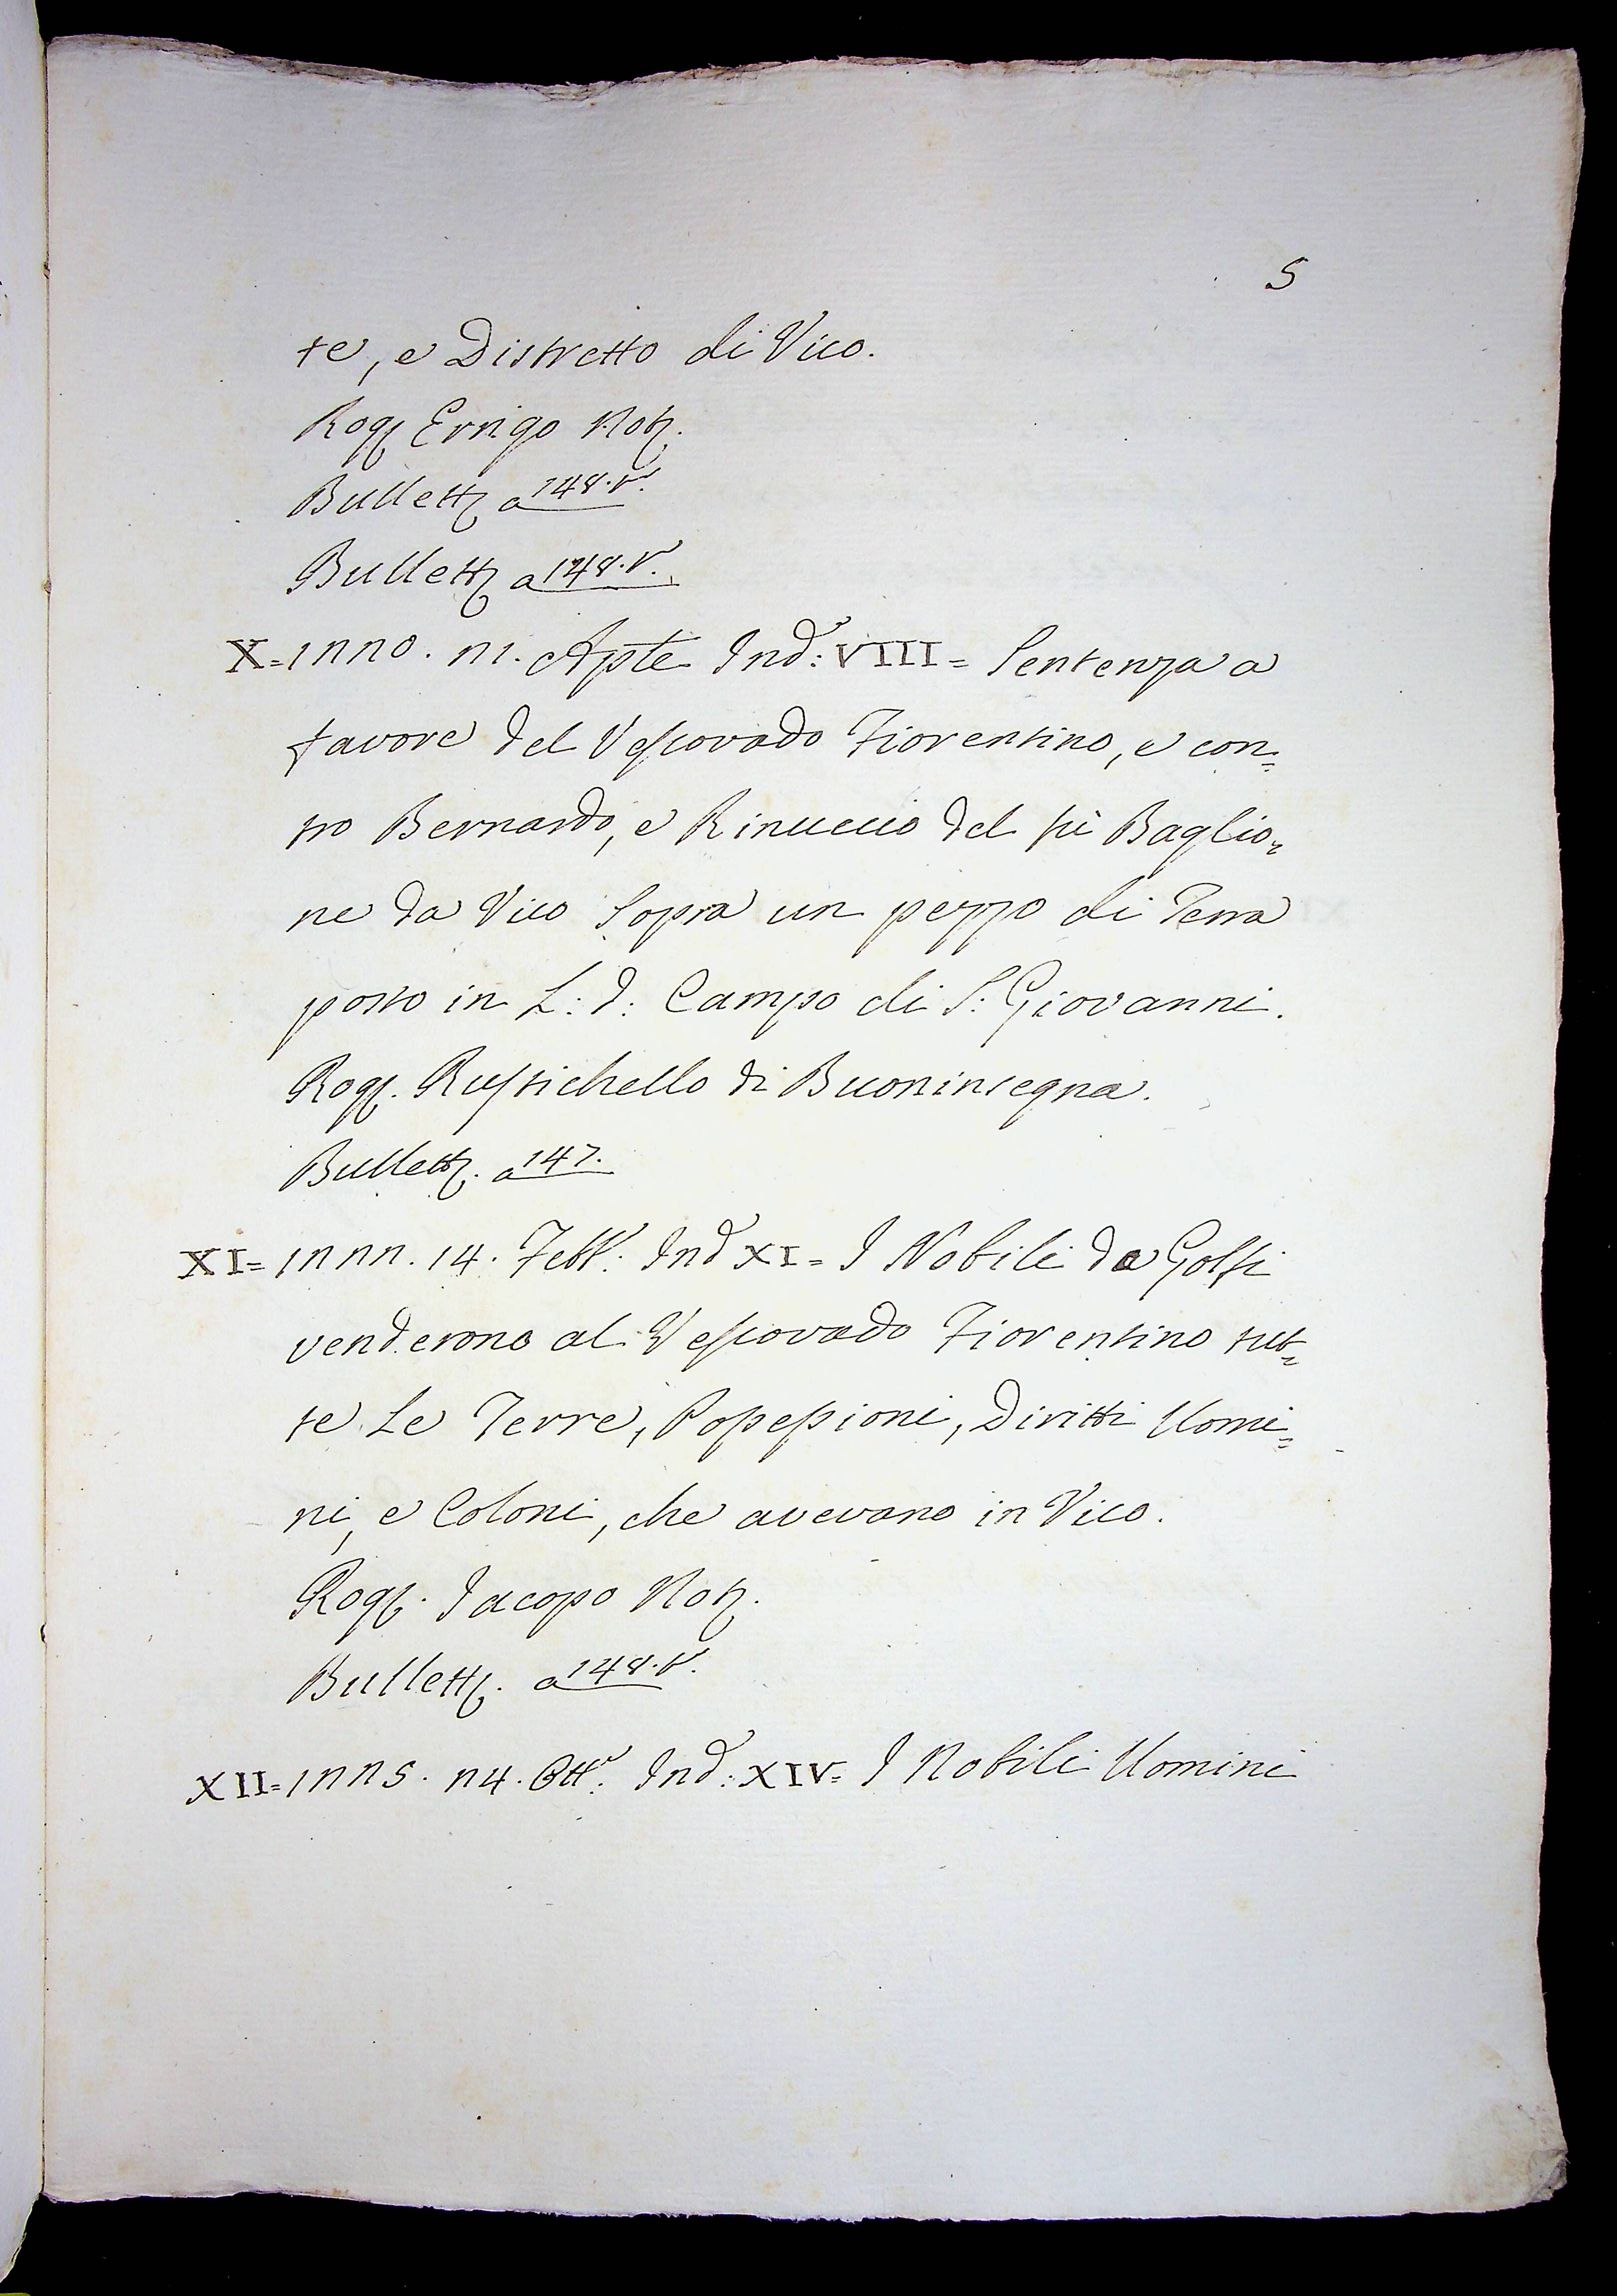 5
te, e Distretto di Vico.
Rog. Errigo Not.
Bullett. a 148. v.
Bullett. a 148. v.
X= 1220. 21. Aple Ind: VIII = Sentenza a
favore del Vescovado Fiorentino, e con=
tro Bernardo, e Rinuccio del fù Baglio=
ne da Vico Sopra un pezzo di Terra
posto in L: d: Campo di S: Giovanni.
Rog. Rustichello di Buoninsegna.
Bullett. a 147.
XI= 1222. 14. Febb: Ind XI = I Nobili da Golfi
venderono al Vescovado Fiorentino tut=
te Le Terre, Possessioni, Diritti Uomi=
ni, e Coloni, che avevano in Vico.
Rog. Iacopo Not.
Bullett. a 148. v.
XII= 1225. 24. Ott: Ind: XIV= I Nobili Uomini